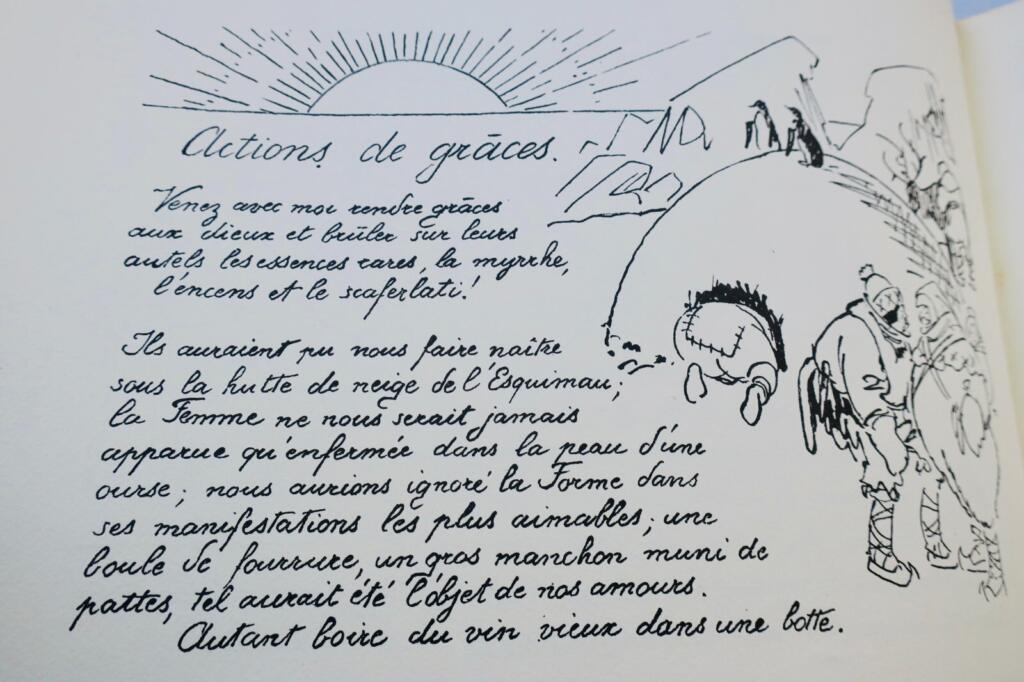 Actions de grāces.
Venez avec moi rendre grāces
aux dieux et brûler sur leurs
autels les essences rares, la myrrhe,
l'encens et le scaferlati!
Ils auraient pu nous faire naître
sous la hutte de neige de l'Esquimau;
la Femme ne nous serait jamais
apparue qu'enfermée dans la peau d'une
ourse; nous aurions ignoré la Forme dans
ses manifestations les plus aimables; une
boule de fourrure, un gros manchon muni de
pattes, tel aurait été l'objet de nos amours.
Autant boire du vin vieux dans une botte.